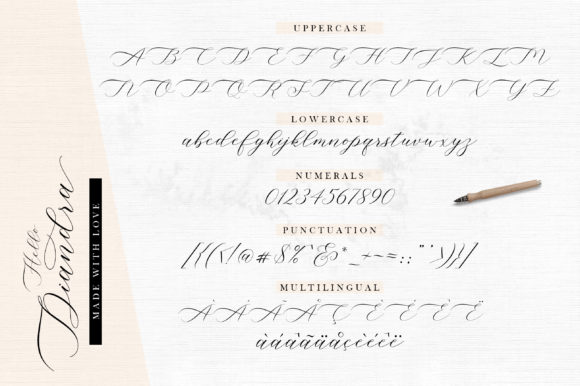 UPPERCASE
A B C D E F G H I J K L M
N O P Q R S T U V W X Y Z
LOWERCASE
abcdefghijklmnopqrstuvwxyz
NUMERALS
01234567890
PUNCTUATION
MULTILINGUAL
àáâãäåçèéêë
Hello
Diandra
MADE WITH LOVE